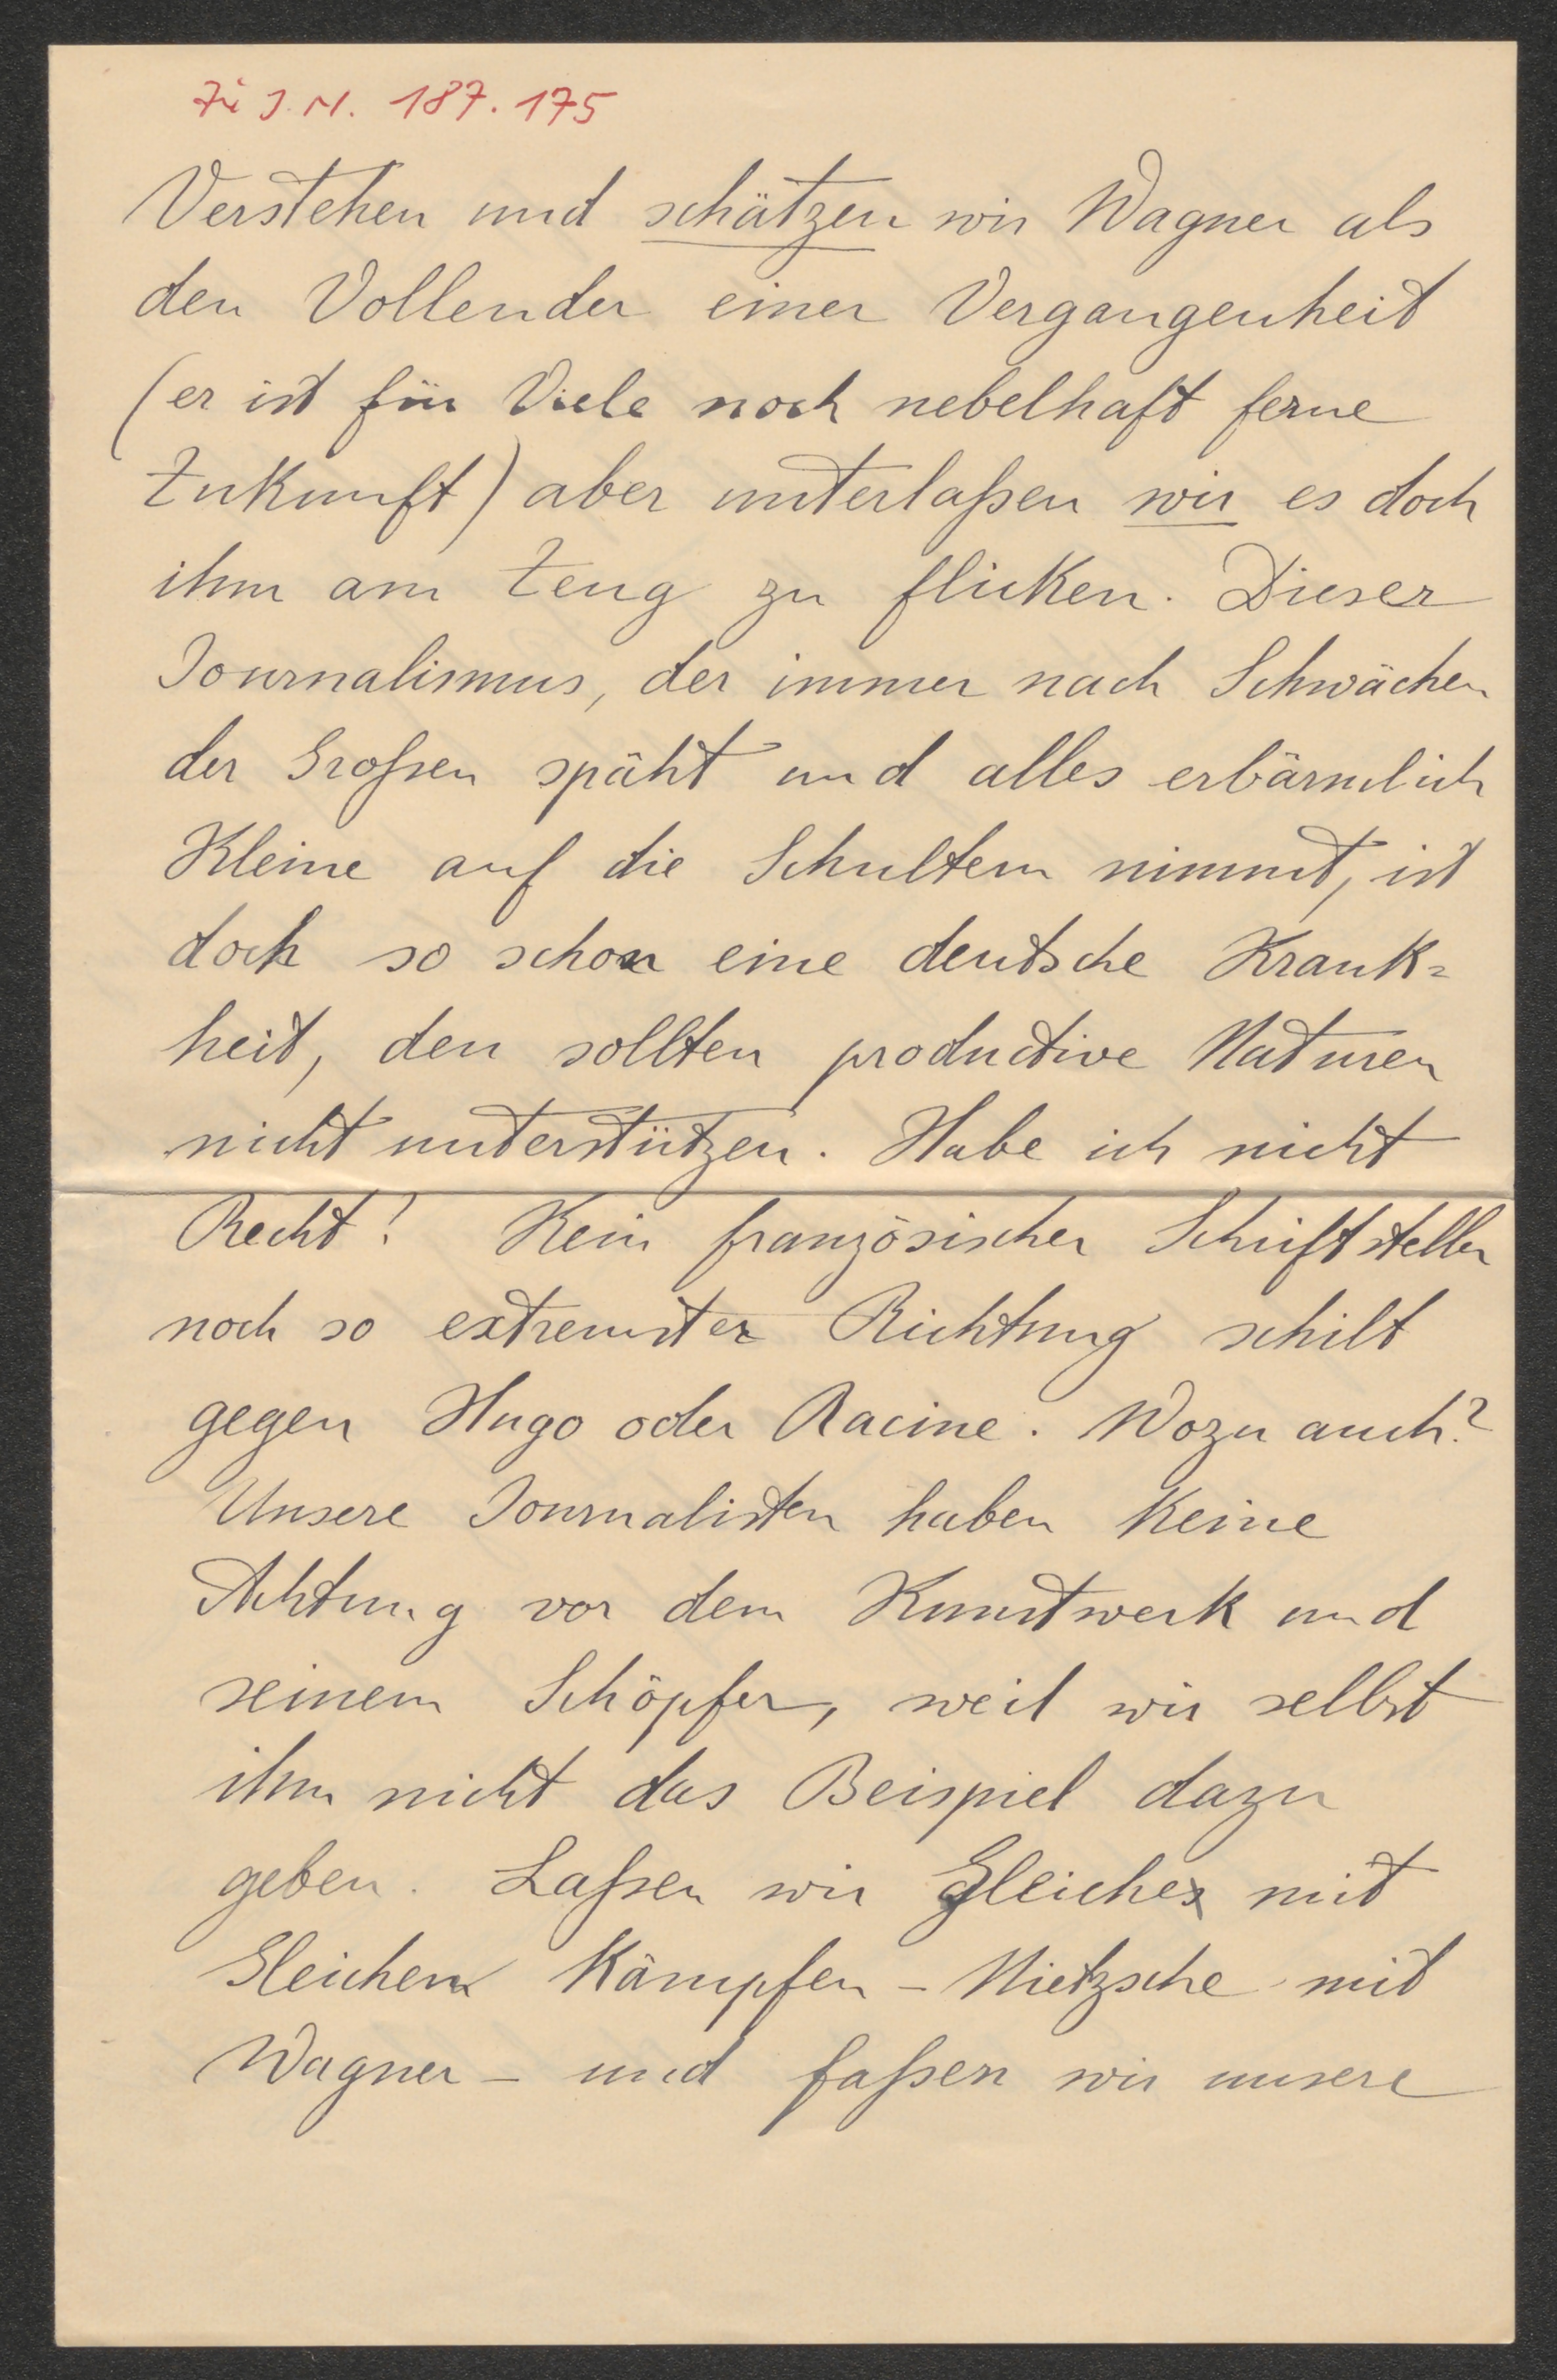 Zu I.N. 187.175
Verstehen und schätzen wir Wagner als
den Vollender einer Vergangenheit
(er ist für Viele noch nebelhaft ferne
Zukunft) aber unterlaßen wir es doch
ihm am Zeug zu flicken. Dieser
Journalismus, der immer nach Schwächen
der Großen späht und alles erbärmlich
Kleine auf die Schultern nimmt, ist
doch so schon eine deutsche Krank=
heit, den sollten productive Naturen
nicht unterstützen. Habe ich nicht
Recht? Kein französischer Schriftsteller
noch so extremster Richtung schilt
gegen Hugo oder Racine. Wozu auch?
Unsere Journalisten haben keine
Achtung vor dem Kunstwerk und
seinem Schöpfer, weil wir selbst
ihm nicht das Beispiel dazu
geben. Laßen wir Gleiches mit
Gleichem kämpfen – Nietzsche mit
Wagner – und faßen wir unsere